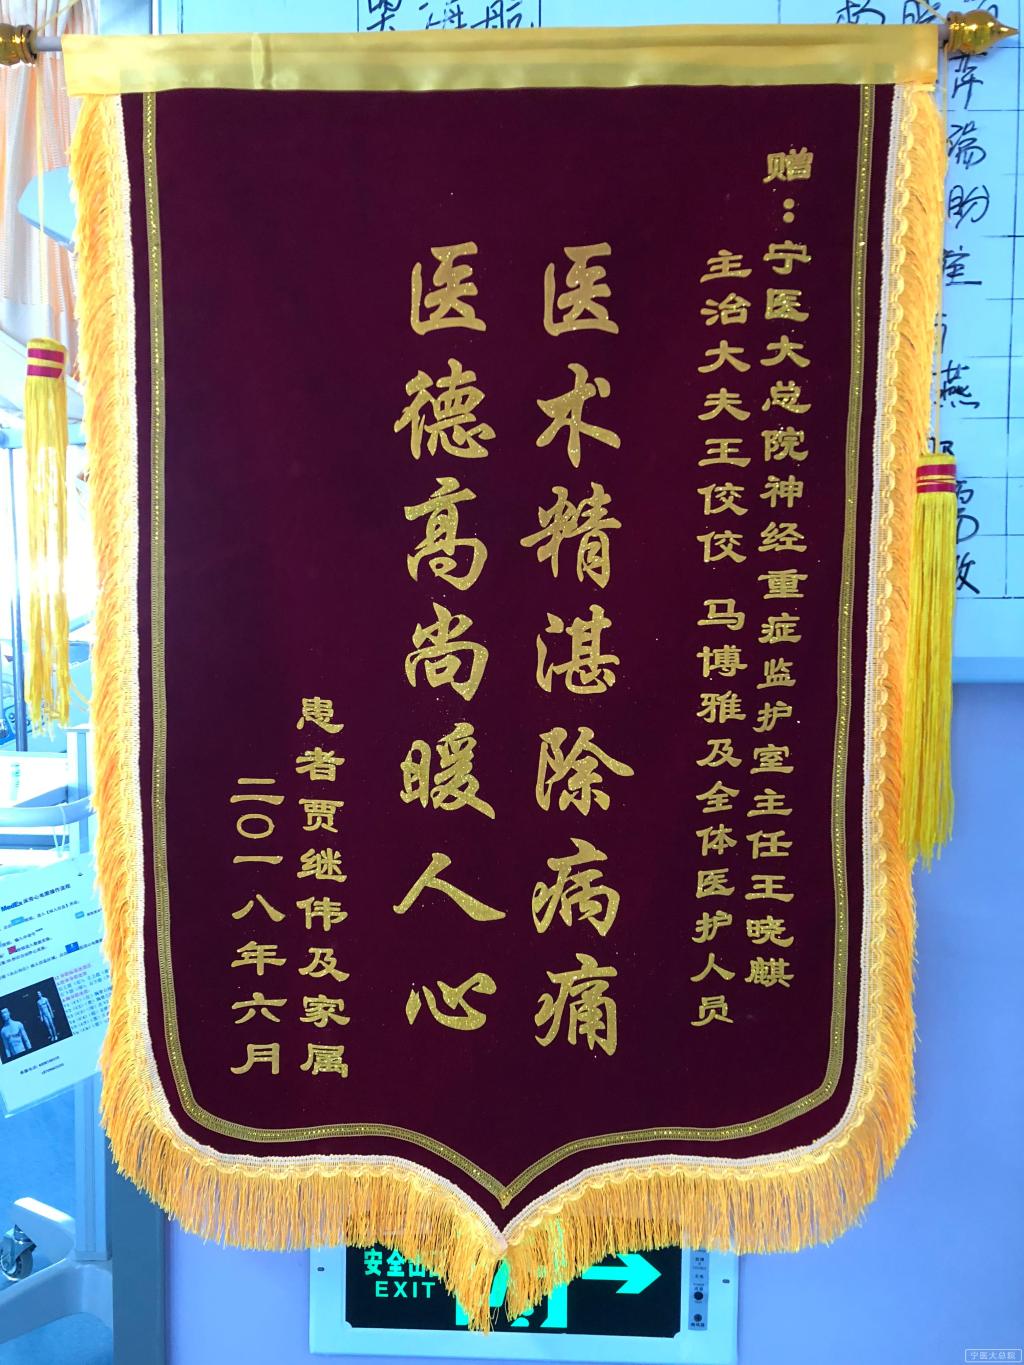 赠：宁医大总院神经重症监护室主任王晓麒
主治大夫王佼佼 马博雅及全体医护人员
医术精湛除病痛
医德高尚暖人心
患者贾继伟及家属
二〇一八年六月
安全出
EXIT
宁医大总院